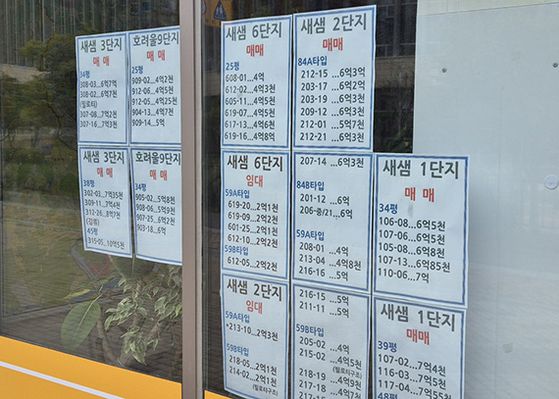 새샘 3단지
매매
34평
308-03...6억7억
308-02...6억3천
(필로티)
307-08...7억2천
307-16...7억3천
호려울9단지
매매
25평
909-02...4억2천
912-06...4억5천
912-05...4억25천
904-13...4억7천
909-14...5억
새샘 3단지
매매
38평
302-03...7억35천
309-11...7억4천
312-26...8억7천
45평
315-05...10억5천
호려울9단지
매매
34평
905-02...5억8천
908-06...5억9천
907-25...6억2천
903-18...6억
새샘 6단지
매매
25평
608-01...4억
612-02...4억3천
605-11...4억5천
619-07...4억5천
617-13...4억6천
619-16...4억8천
새샘 2단지
매매
84A타입
212-15 ...6억3천
203-17 ...6억2천
203-19 ...6억3천
209-12 ...6억3천
212-01 ...5억7천
212-21 ...6억3천
새샘 6단지
임대
59A타입
619-20 ...2억1천
619-09 ...2억2천
625-08 ...2억3천
601-06 ...2억3천
612-10 ...2억2천
59B타입
612-05 ...2억2천
207-14 ...6억3천
84B타입
201-12 ...6억
206-중/21 ...6억
59A타입
208-01 ...4억
213-04 ...4억8천
216-16 ...5억
새샘 1단지
매매
34평
106-08 ...6억5천
107-06 ...6억5천
105-08 ...6억5천
107-13 ...6억85천
110-06 ...7억
새샘 2단지
임대
59A타입
*213-10 ...2억3천
59B타입
218-05 ...2억1천
214-02 ...2억1천
(필로티구조)
216-15 ...5억
211-11 ...5억
59B타입
205-02 ...4억
215-02 ...4억5천
(필로티구조)
218-19 ...4억9천
217-18 ...4억7천
새샘 1단지
매매
39평
107-02 ...7억4천
116-03 ...7억5천
117-04 ...7억55천
48평